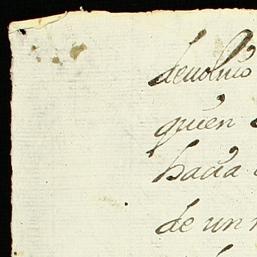 devolvio
quien
hacia
de un